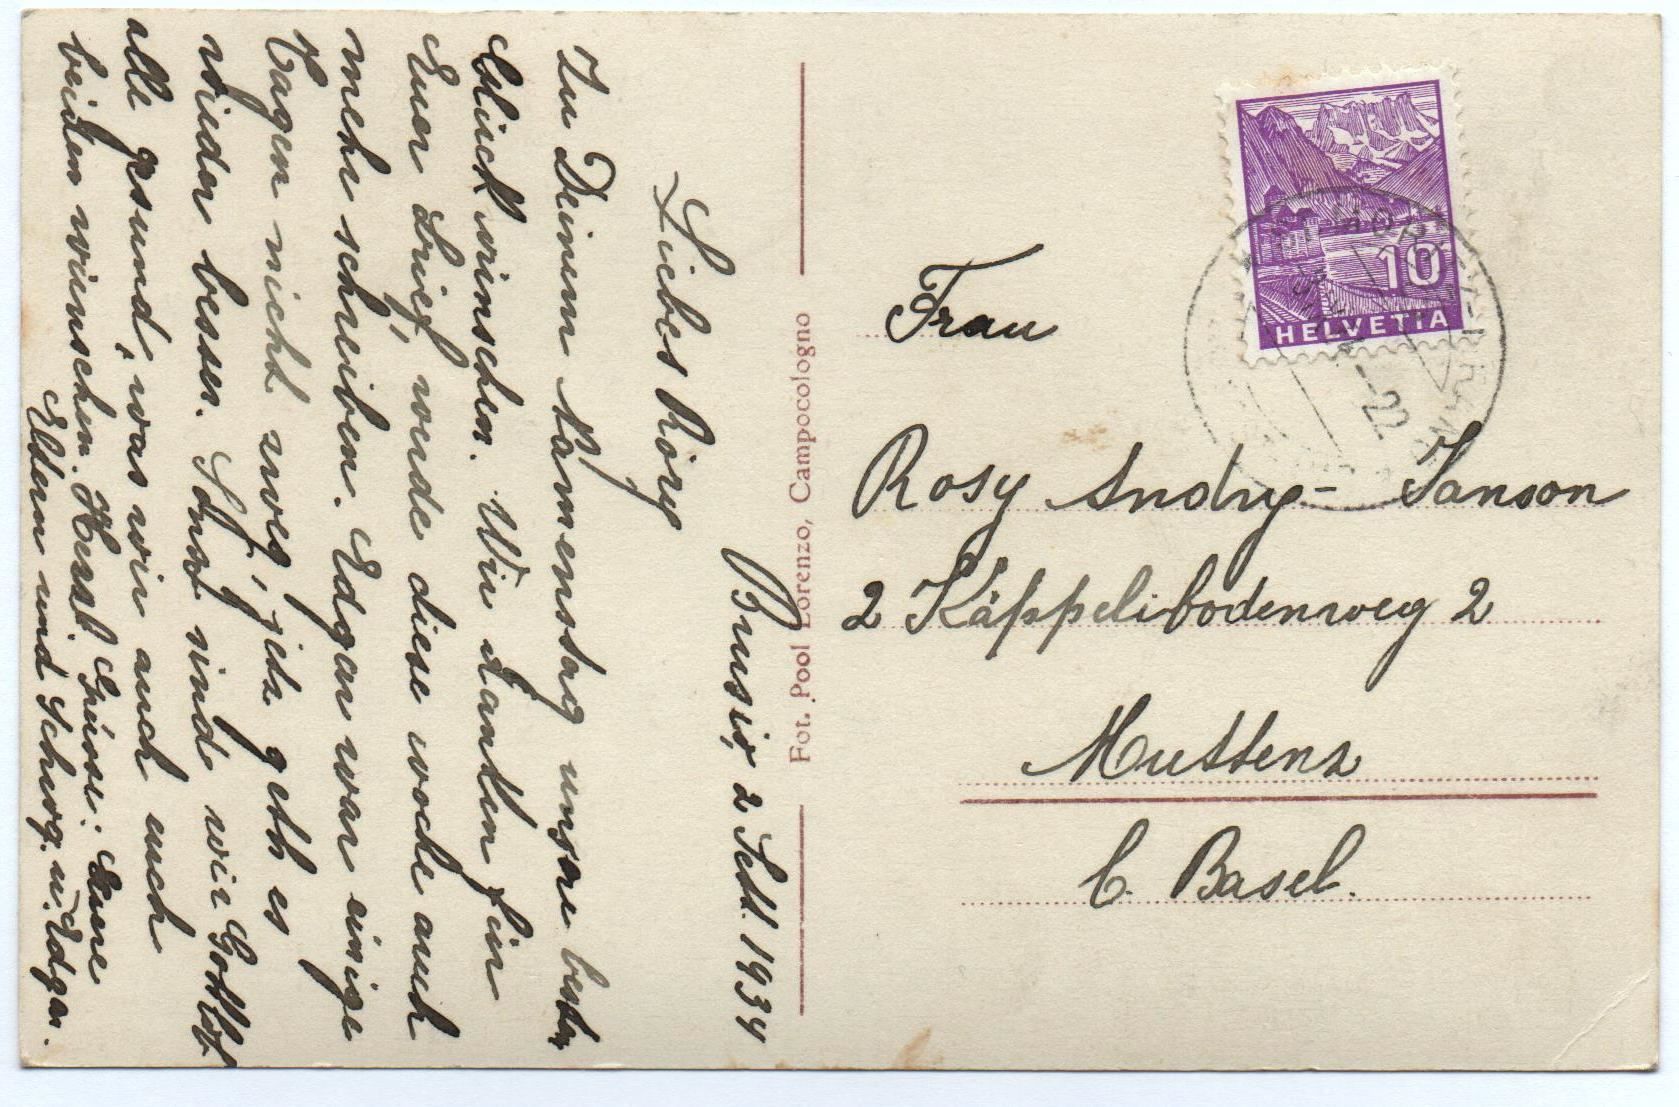 Brusio, 2 Sept. 1934
Liebes Rösy
Zu Deinem Namenstag unsere besten
Glückwünschen. Wir danken für
Euer Brief, werde diese woche auch
mehr schreiben. Edgar war einige
Tagen nicht weg, jetz geth es
wieder besser. Sonst sind wir Gottlob
alle gsund, was wir auch euch
beiden wünschen. Herzl. Grüsse: Euere
Eltern und Schwg. u. Edgar.
Fot. Pool Lorenzo, Campocologno
10
HELVETIA
Frau
Rosy Andry - Janson
2 Käppelibodenweg 2
Muttenz
b. Basel.